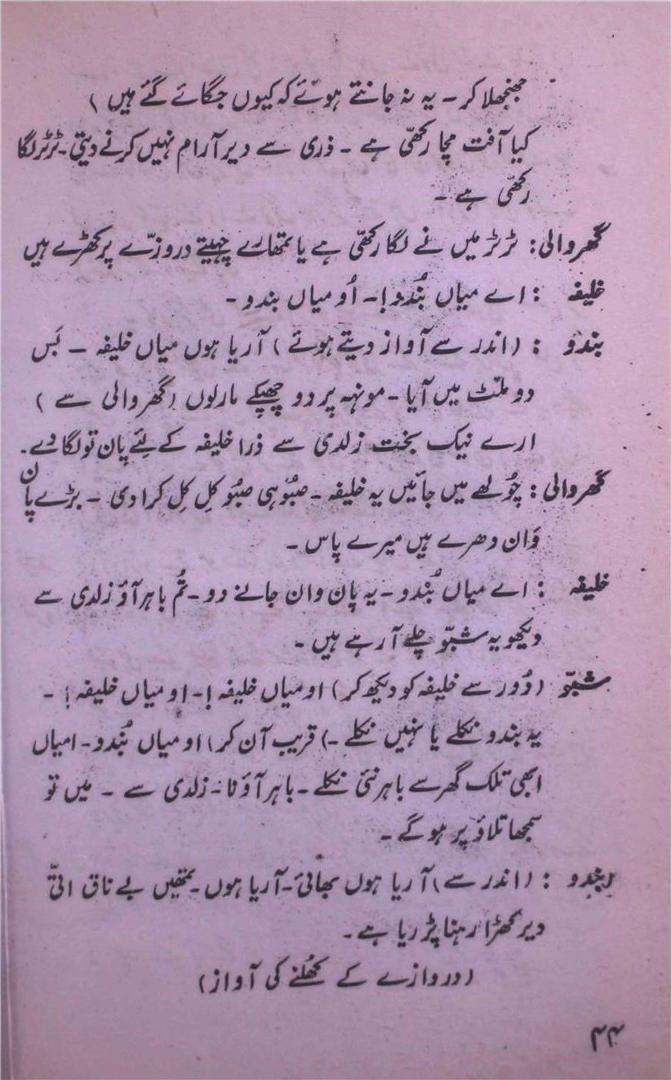 جھنجھلا کر - یہ نہ جانتے ہوئے کہ کیوں جگائے گئے ہیں )
کیا آفت مچا رکھّی ہے - ذری سے دیر آرام نہیں کرنے دیتی - ٹرٹر لگا
رکھّی ہے -
گھر والی : ٹرٹر میں نے لگا رکھّی ہے یا تمھارے چہیتے دروزّے پر کھڑے ہیں
خلیفہ : اے میاں بُندو ! - اُو میاں بندو -
بندو : ( اندر سے آواز دیتے ہوئے ) آریا ہوں میاں خلیفہ - بَس
دو ملٹ میں آیا - مونہہ پر دو چھپکے مارلوں ( گھر والی سے )
ارے نیک بخت زلدی سے ذرا خلیفہ کے لئے پان تو لگا دے -
گھر والی : چُولھے میں جائیں یہ خلیفہ - صبُو ہی صبُو کِل کِل کرا دی - بڑے پان
وَان دھرے ہیں میرے پاس -
خلیفہ : اے میاں بُندو - یہ پان وان جانے دو - تُم باہر آؤ زلدی سے
دیکھو یہ شبّو چلے آ رہے ہیں -
شبّو ( دُور سے خلیفہ کو دیکھ کر ) او میاں خلیفہ ! - او میاں خلیفہ ! -
یہ بندو نکلے یا نہیں نکلے - ) قریب آن کر ) او میاں بُندو - امیاں
ابھی تلک گھر سے باہر نئی نکلے - باہر آؤ نا - زلدی سے - میں تو
سمجھا تلاؤ پر ہوگے -
بندو : ( اندر سے ) آریا ہوں بھائی - آریا ہوں - تمھیں بے ناق اتّی
دیر کھڑا رہنا پڑ ریا ہے -
( دروازے کے کھُلنے کی آواز )
۴۴